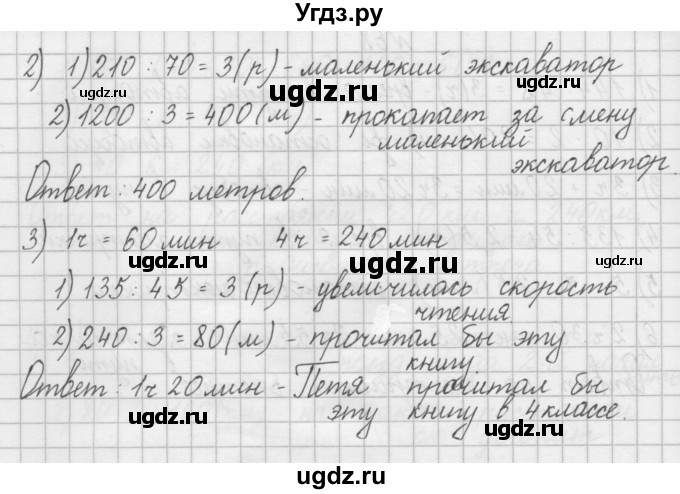 Угдз.ру
2) 1) 210 : 70 = 3 (р) - маленький экскаватор
ugdz.ru ugdz.ru
2) 1200 : 3 = 400 (м) - прокапает за смену
ugdz.ru
маленький
экскаватор.
Ответ: 400 метров.
ugdz.ru ugdz.ru
3) 1ч = 60 мин 4ч = 240 мин
ugdz.ru ugdz.ru
1) 135 : 45 = 3 (р) - увеличилась скорость
чтения
ugdz.ru
2) 240 : 3 = 80 (м) - прочитал бы эту
книгу
ugdz.ru
Ответ: 1ч 20 мин - Петя прочитал бы
ugdz.ru
эту книгу в 4 классе.
ugdz.ru
ugdz.ru